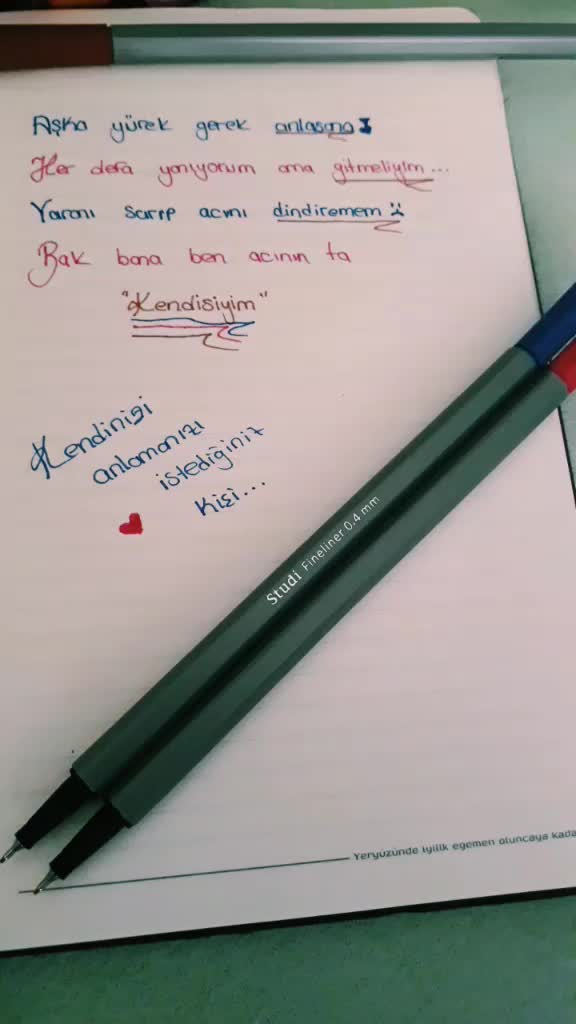 Aşka yürek gerek anlasana
Her defa yanıyorum ama gitmeliyim...
Yaranı sarıp acını dindiremem :(
Bak bana ben acının ta
"Kendisiyim"
Kendinizi
anlamanızı
istediğiniz
kişi...
Studi Fineliner 0.4 mm
Yeryüzünde iyilik egemen oluncaya kada